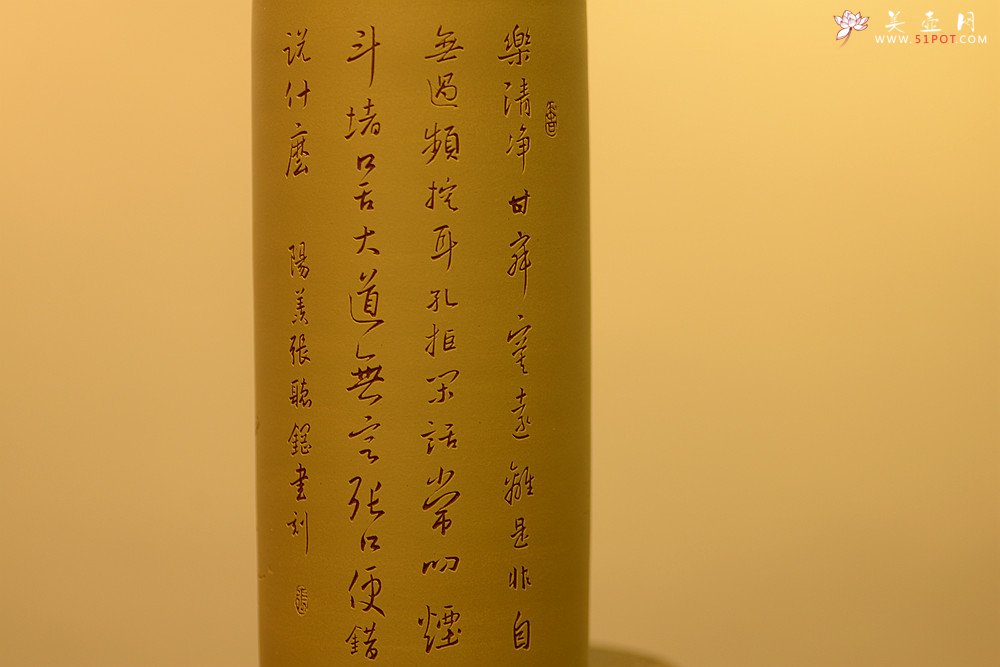 樂清净甘寂寞遠離是非自
無過頻挖耳孔拒閑話常叼煙
斗堵口舌大道無言張口便錯
说什麼
陽羡張聽鋸書刻
美壶网
WWW.51POT.COM